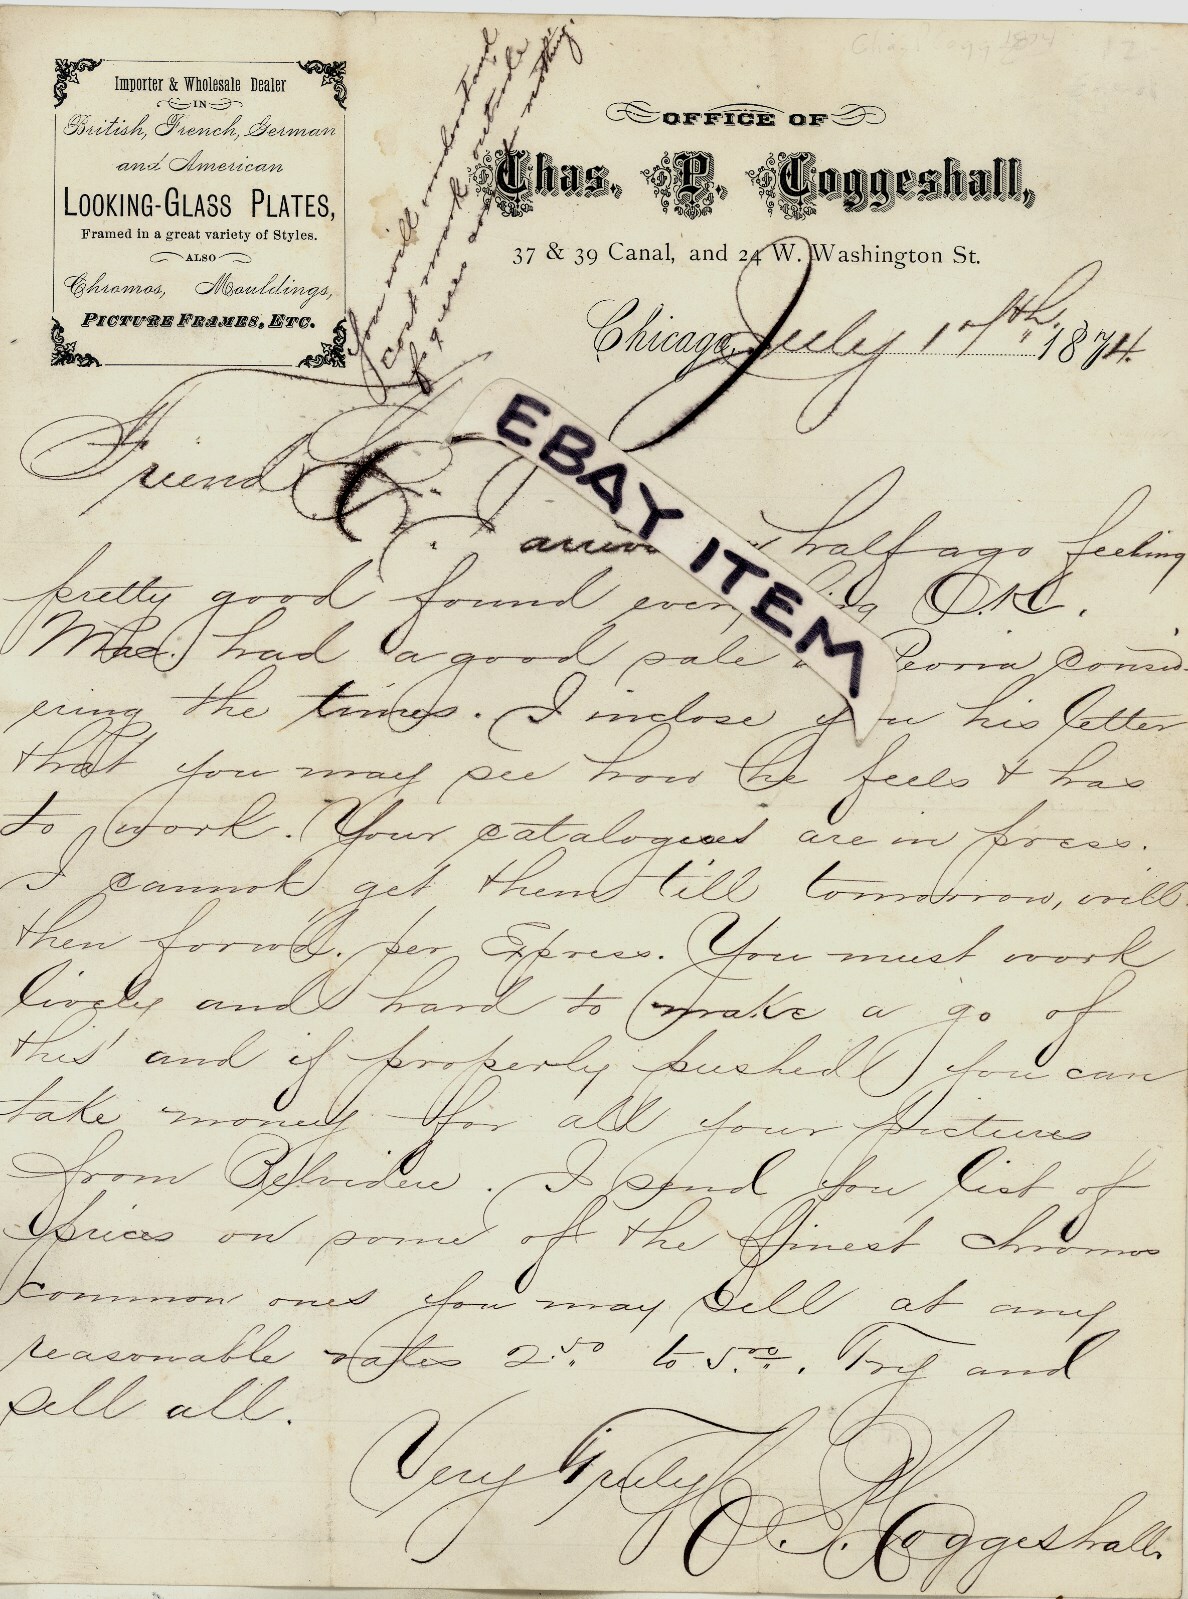 Importer & Wholesale Dealer
IN
British, French, German
and American
LOOKING-GLASS PLATES,
Framed in a great variety of Styles.
ALSO
Chromos, Mouldings,
PICTURE FRAMES, ETC.
You will understand
cost mark outside
figures are nothing.
OFFICE OF
Chas. P. Coggeshall,
37 & 39 Canal, and 24 W. Washington St.
Chicago, July 1874
EBAY ITEM
Friend
half ago feeling
pretty good found O.K.
Mac. had a good sale Peoria consid-
ering the times. I inclose you his letter
that you may see how he feels & has
to work. Your catalogues are in press.
I cannot get them till tomorrow, will
then forw'd. per Express. You must work
lively and hard to make a go of
this and if properly pushed you can
take money for all your pictures
from Belvidere. I send you list of
prices on some of the finest chromos
common ones you may sell at any
reasonable rates 2.50 to 5.00. Try and
sell all.
Very Truly
C. P. Coggeshall.